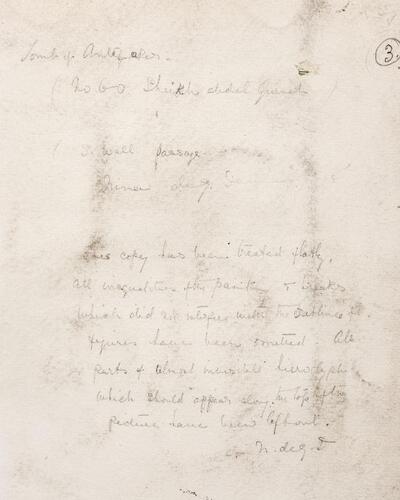 3.
Tomb of Antefoker.
(No 60 Sheikh abdel Gurneh)
S. Wall passage
This copy has been treated flatly,
all inequalities of the paint & breaks
which did not interfere with the outline of
figures have been omitted All
parts of almost invisible hieroglyphs
which should appear along the top of the
picture have been left out.
N. de G. D